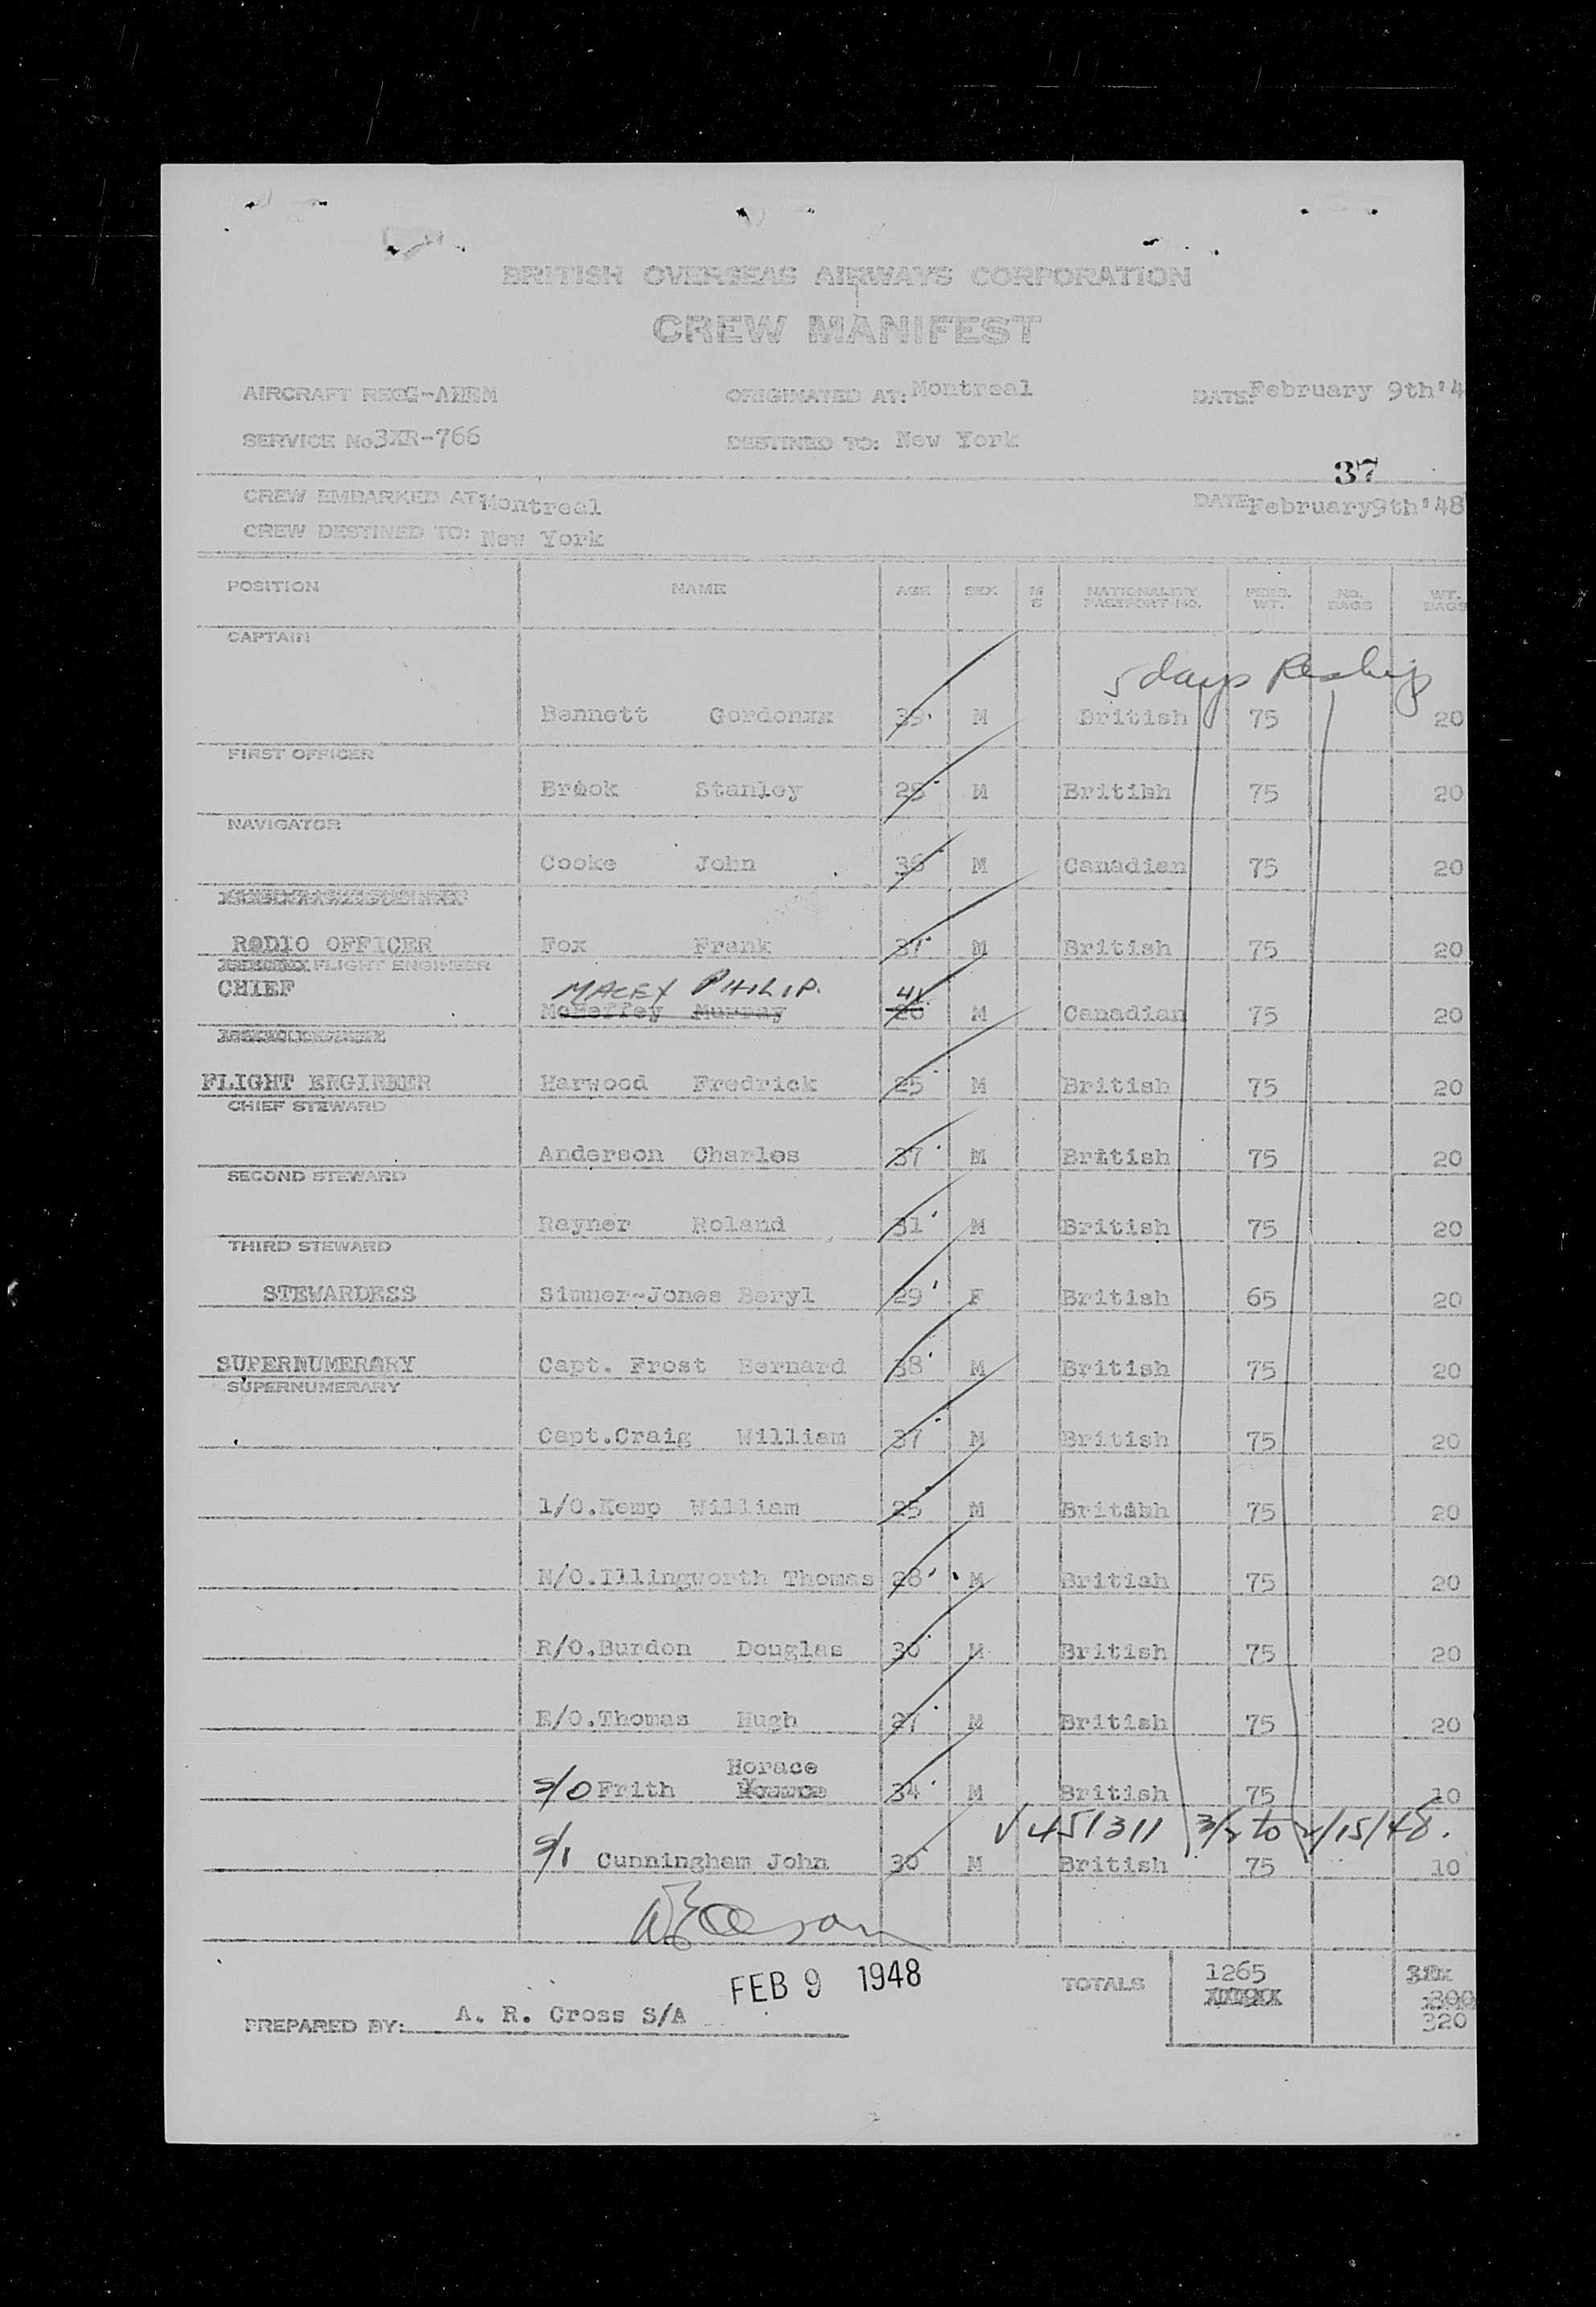 BRITISH OVERSEAS AIRWAYS CORPORATION
CREW MANIFEST
AIRCRAFT REG G-AHEM ORIGINATED AT: Montreal DATE: February 9th'4
SERVICE No 3XR-766 DESTINED TO: New York
37
CREW EMBARKED AT: Montreal DATE February 9th'48
CREW DESTINED TO: New York
POSITION NAME AGE SEX M S NATIONALITY PASSPORT NO. PERS. WT. NO. BAGS WT. BAGS
CAPTAIN
5 days
Bennett Gordonxx 39 M British 75 20
FIRST OFFICER
Brook Stanley 28 M British 75 20
NAVIGATOR
Cooke John 36 M Canadian 75 20
RADIO OFFICER Fox Frank 37 M British 75 20
FLIGHT ENGINEER
CHIEF MACEY PHILIP. 41
McHeffey Murray 26 M Canadian 75 20
FLIGHT ENGINEER Harwood Fredrick 25 M British 75 20
CHIEF STEWARD
Anderson Charles 37 M British 75 20
SECOND STEWARD
Rayner Roland 31 M British 75 20
THIRD STEWARD
STEWARDESS Simner-Jones Beryl 29 F British 65 20
SUPERNUMERARY Capt. Frost Bernard 38 M British 75 20
SUPERNUMERARY
Capt.Craig William 37 M British 75 20
1/O.Kemp William 25 M British 75 20
N/O.Illingworth Thomas 28 M British 75 20
R/O.Burdon Douglas 30 M British 75 20
E/O.Thomas Hugh 27 M British 75 20
Horace
S/O Frith 34 M British 75 10
√ 451311 3/2 to 2/15/48.
S/1 Cunningham John 30 M British 75 10
FEB 9 1948
TOTALS 1265
300
320
PREPARED BY: A. R. Cross S/A